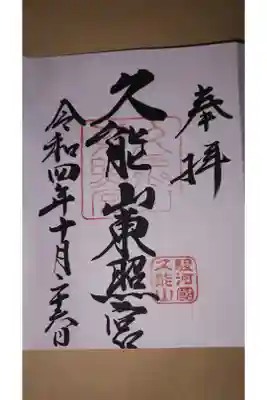 奉拝
久能山東照宮
駿河國
久能山
令和四年十月二十六日